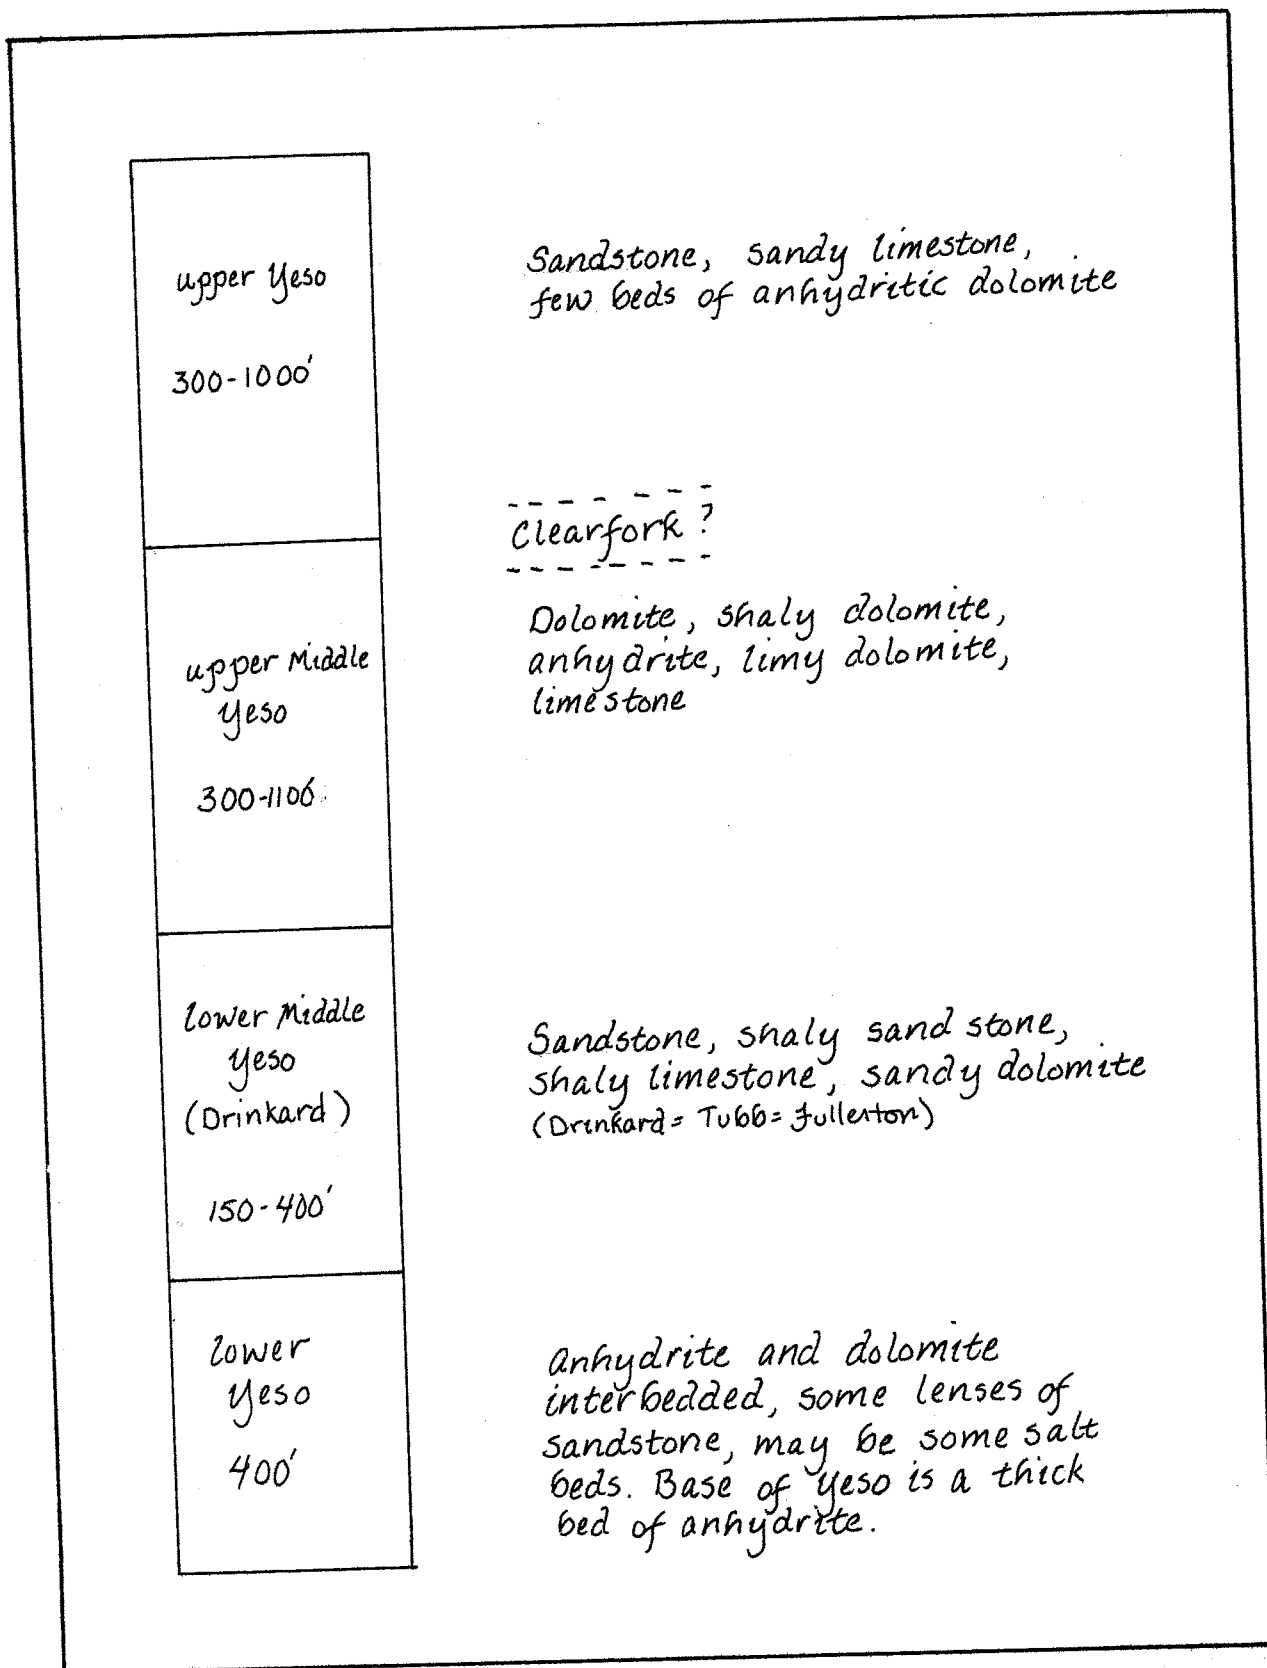 upper Yeso
300-1000'
Sandstone, sandy limestone,
few beds of anhydritic dolomite
Clearfork ?
upper Middle
Yeso
300-1100'
Dolomite, shaly dolomite,
anhydrite, limy dolomite,
limestone
lower Middle
Yeso
(Drinkard)
150-400'
Sandstone, shaly sand stone,
shaly limestone, sandy dolomite
(Drinkard = Tubb = Fullerton)
lower
Yeso
400'
Anhydrite and dolomite
interbedded, some lenses of
sandstone, may be some salt
beds. Base of Yeso is a thick
bed of anhydrite.